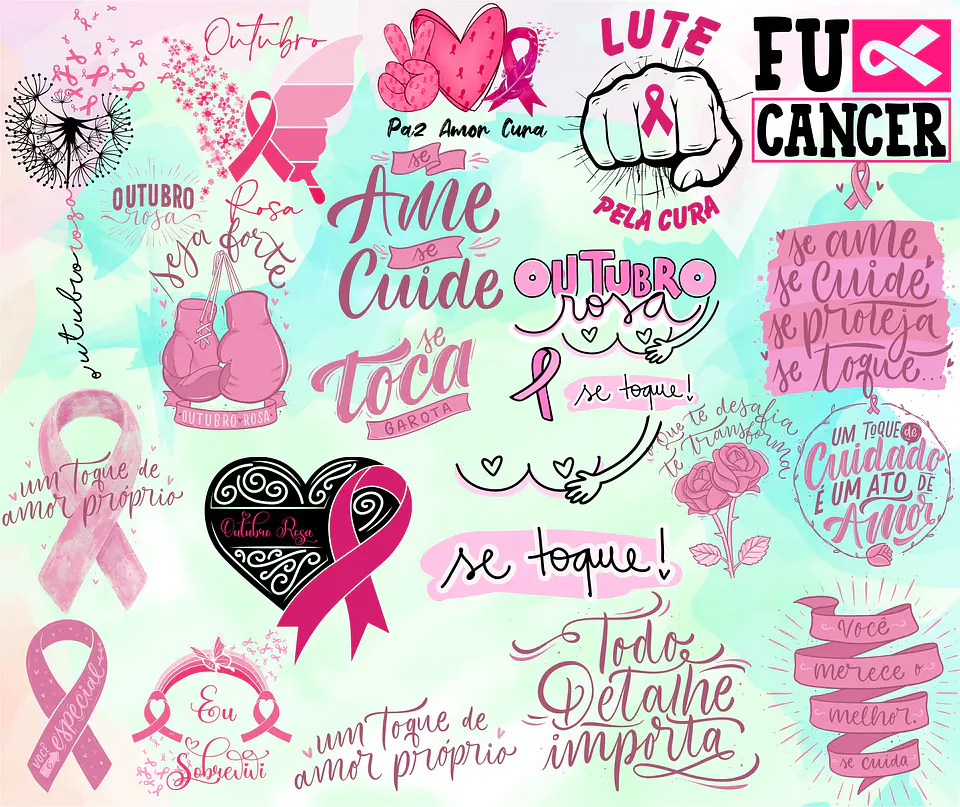 Outubro
Rosa
outubro rosa
OUTUBRO
rosa
Paz Amor Cura
LUTE
PELA CURA
FU
CANCER
seja forte
OUTUBRO ROSA
se
Ame
se
Cuide
se
toca
GAROTA
OUTUBRO
rosa
se toque!
se ame
se cuide
se proteja
se toque...
um toque de
amor próprio
Outubro Rosa
se toque!
Que te desafia
te transforma
UM TOQUE de
Cuidado
É UM ATO DE
Amor
você
é especial
Eu
Sobrevivi
um toque de
amor próprio
Todo
Detalhe
importa
Você
merece o
melhor.
se cuida